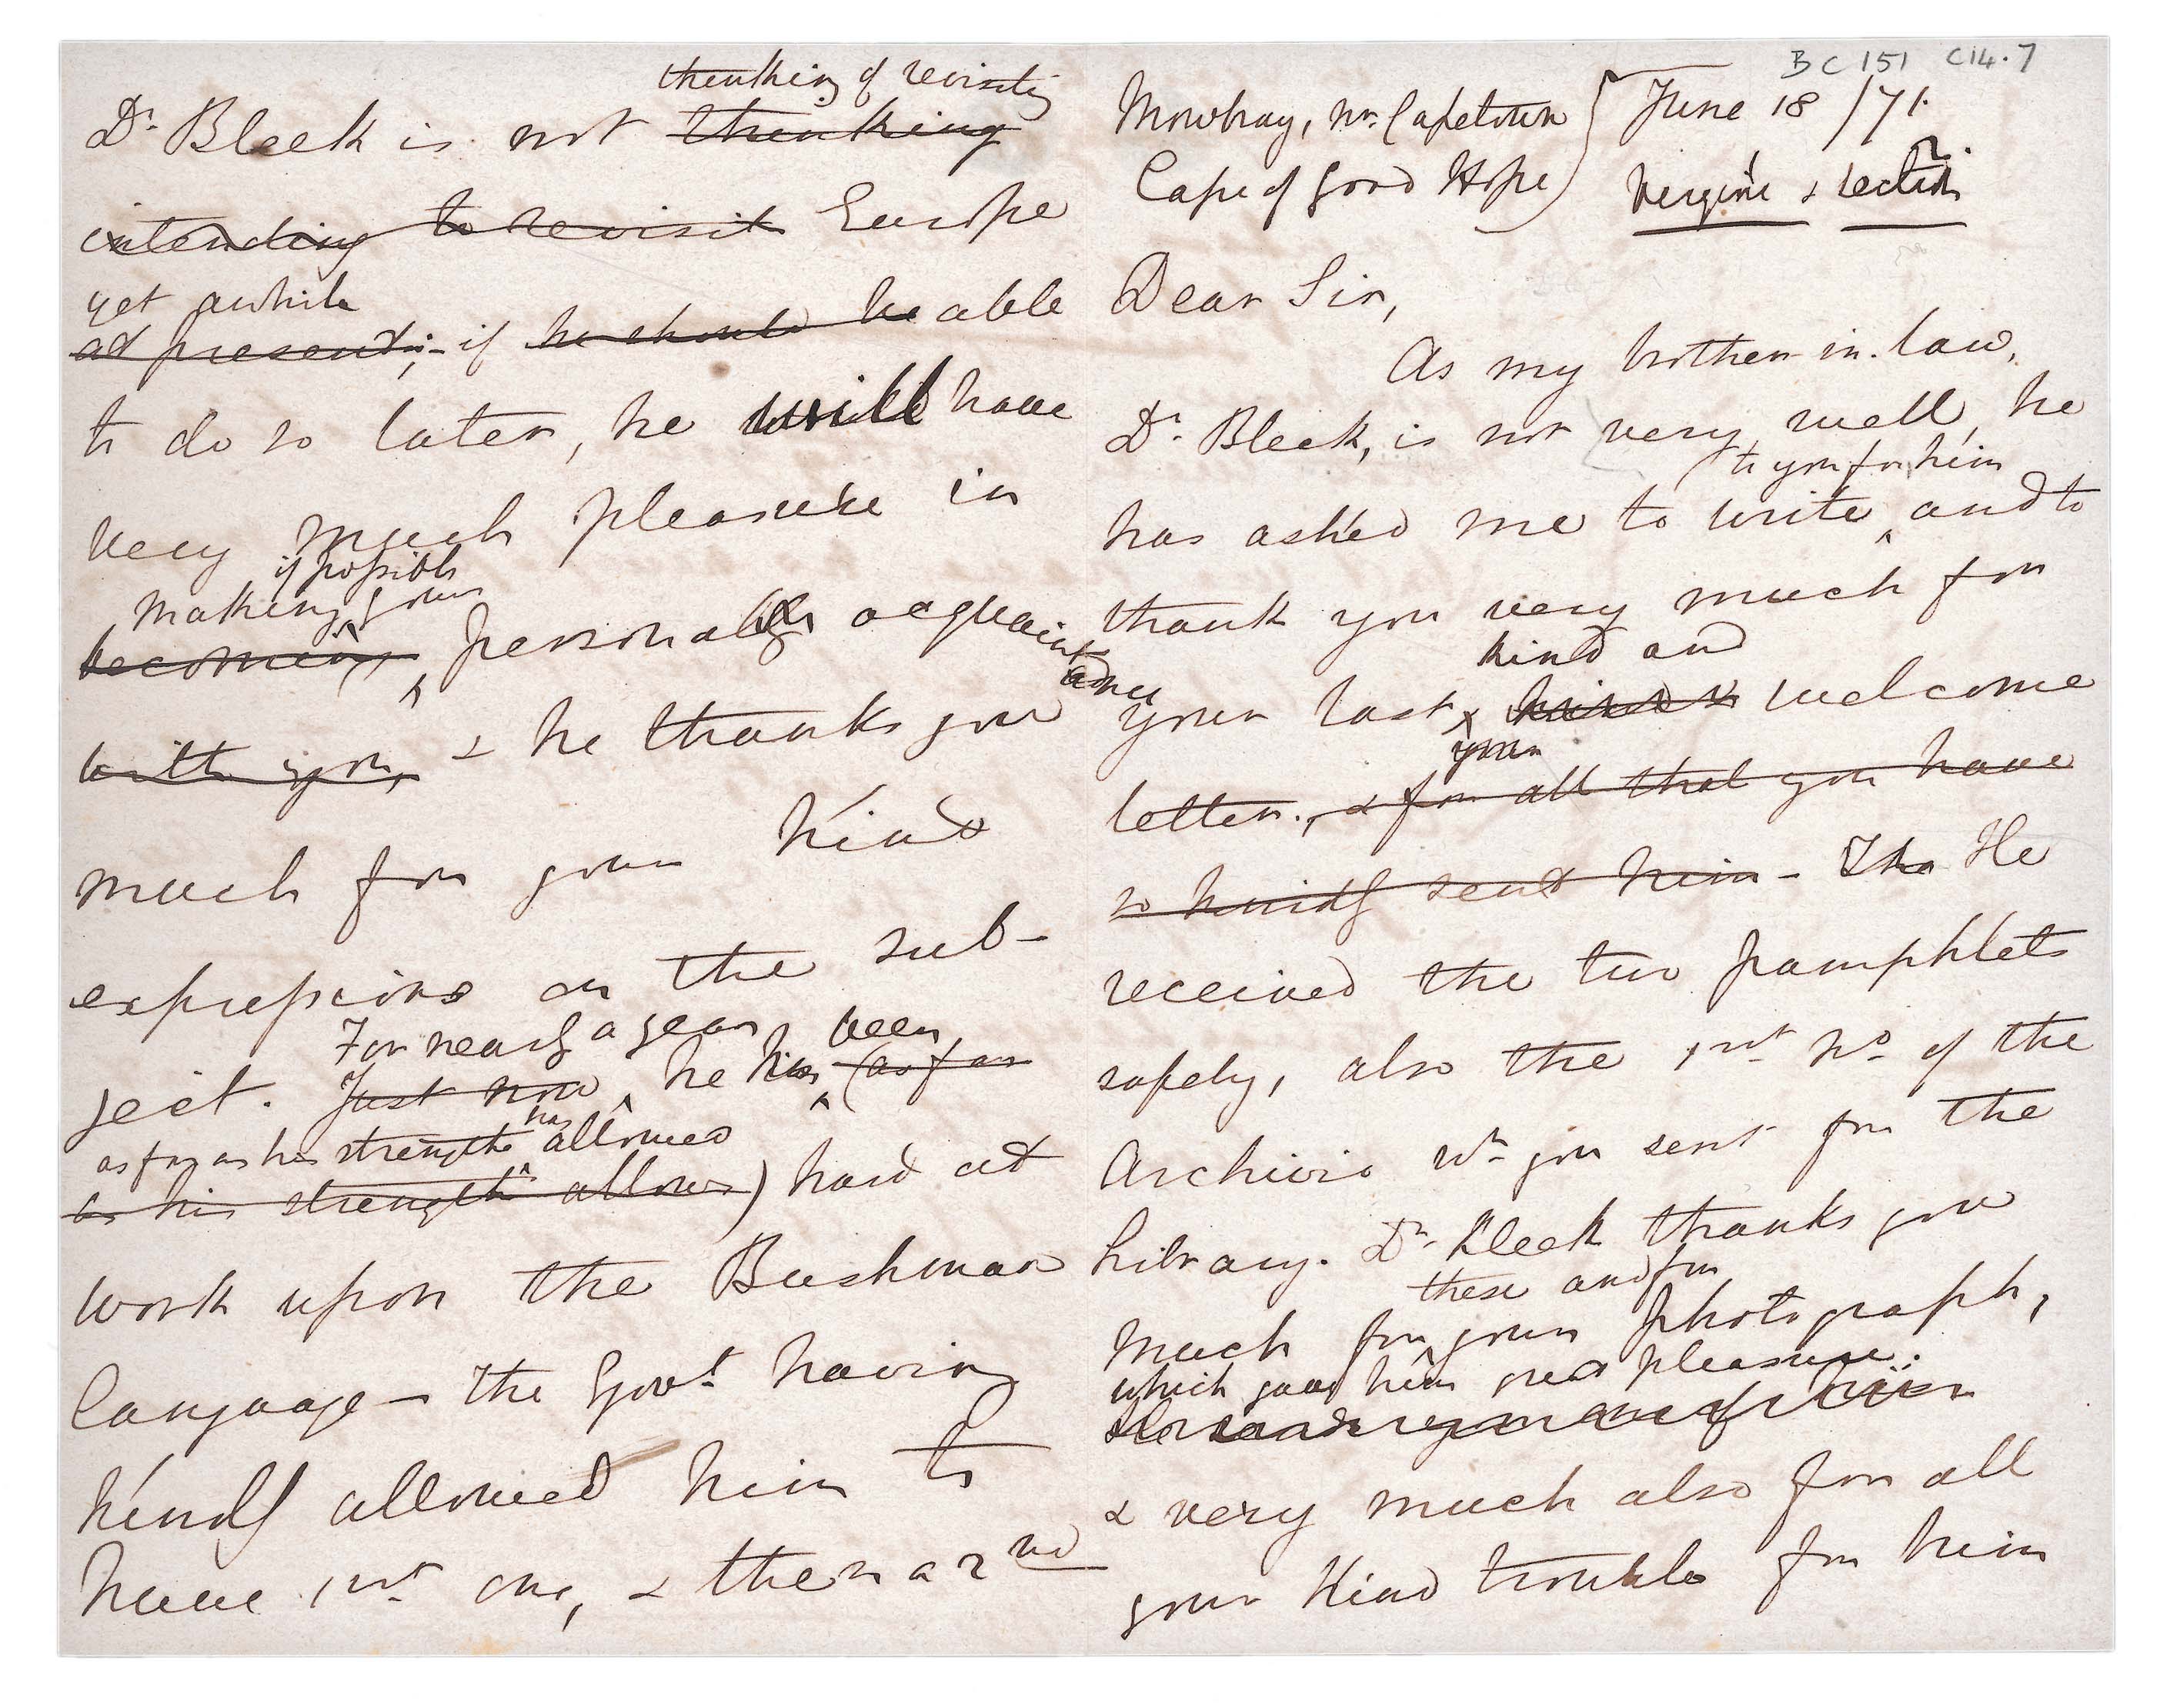 BC 151 C14.7
Mowbray, nr. Capetown
Cape of Good Hope
June 18 /71.
Dear Sir,
As my brother-in-law,
Dr. Bleek, is not very well, he
to you for him
has asked me to write and to
thank you very much for
kind and
your last welcome
your
letter., & for all that you have
so kindly sent him - The He
received the two pamphlets
safely, also the 1st No. of the
Archivio wh. you sent for the
Library. Dr. Bleek thanks you
these and for
much for your photograph,
which gave him great pleasure:
& very much also for all
your kind trouble for him
thinking of revisiting
Dr. Bleek is not thinking
intending to revisit Europe
yet awhile
at present; - if he should be able
to do so later, he will have
very much pleasure in
if possible
making your
becoming personal acquaintance
with you, & he thanks you
much for your kind
expressions on the sub-
For nearly a year been
ject. Just now he has (as far
as far as his strength has allowed
as his strength allows) hard at
work upon the Bushman
language - the Govt. having
kindly allowed him to
have 1st. one, & then a 2nd